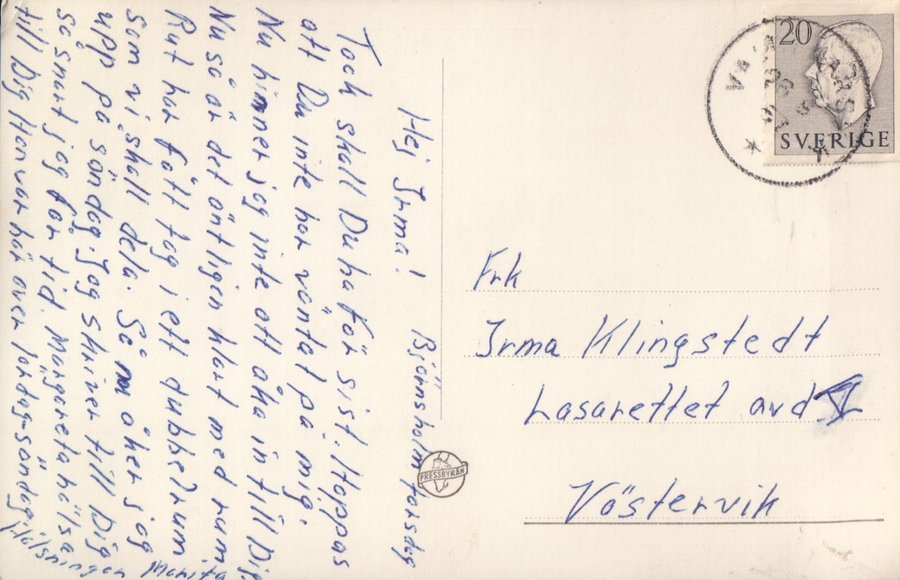 Hej Irma! Björnsholm torsdag
Tack skall Du ha för sist. Hoppas
att Du inte har väntat på mig.
Nu hinner jag inte att åka in till Dig
Nu så är det äntligen klart med rum
Rut har fått tag i ett dubbelrum
som vi skall dela. Så åker jag
upp på söndag. Jag skriver till Dig
så snart jag får tid. Margareta hälsa
till Dig Hon var här över lördag-söndag
Hälsningar Marita
PRESSBYRÅN
20
SVERIGE
Frk
Irma Klingstedt
Lasarettet avd V
Västervik